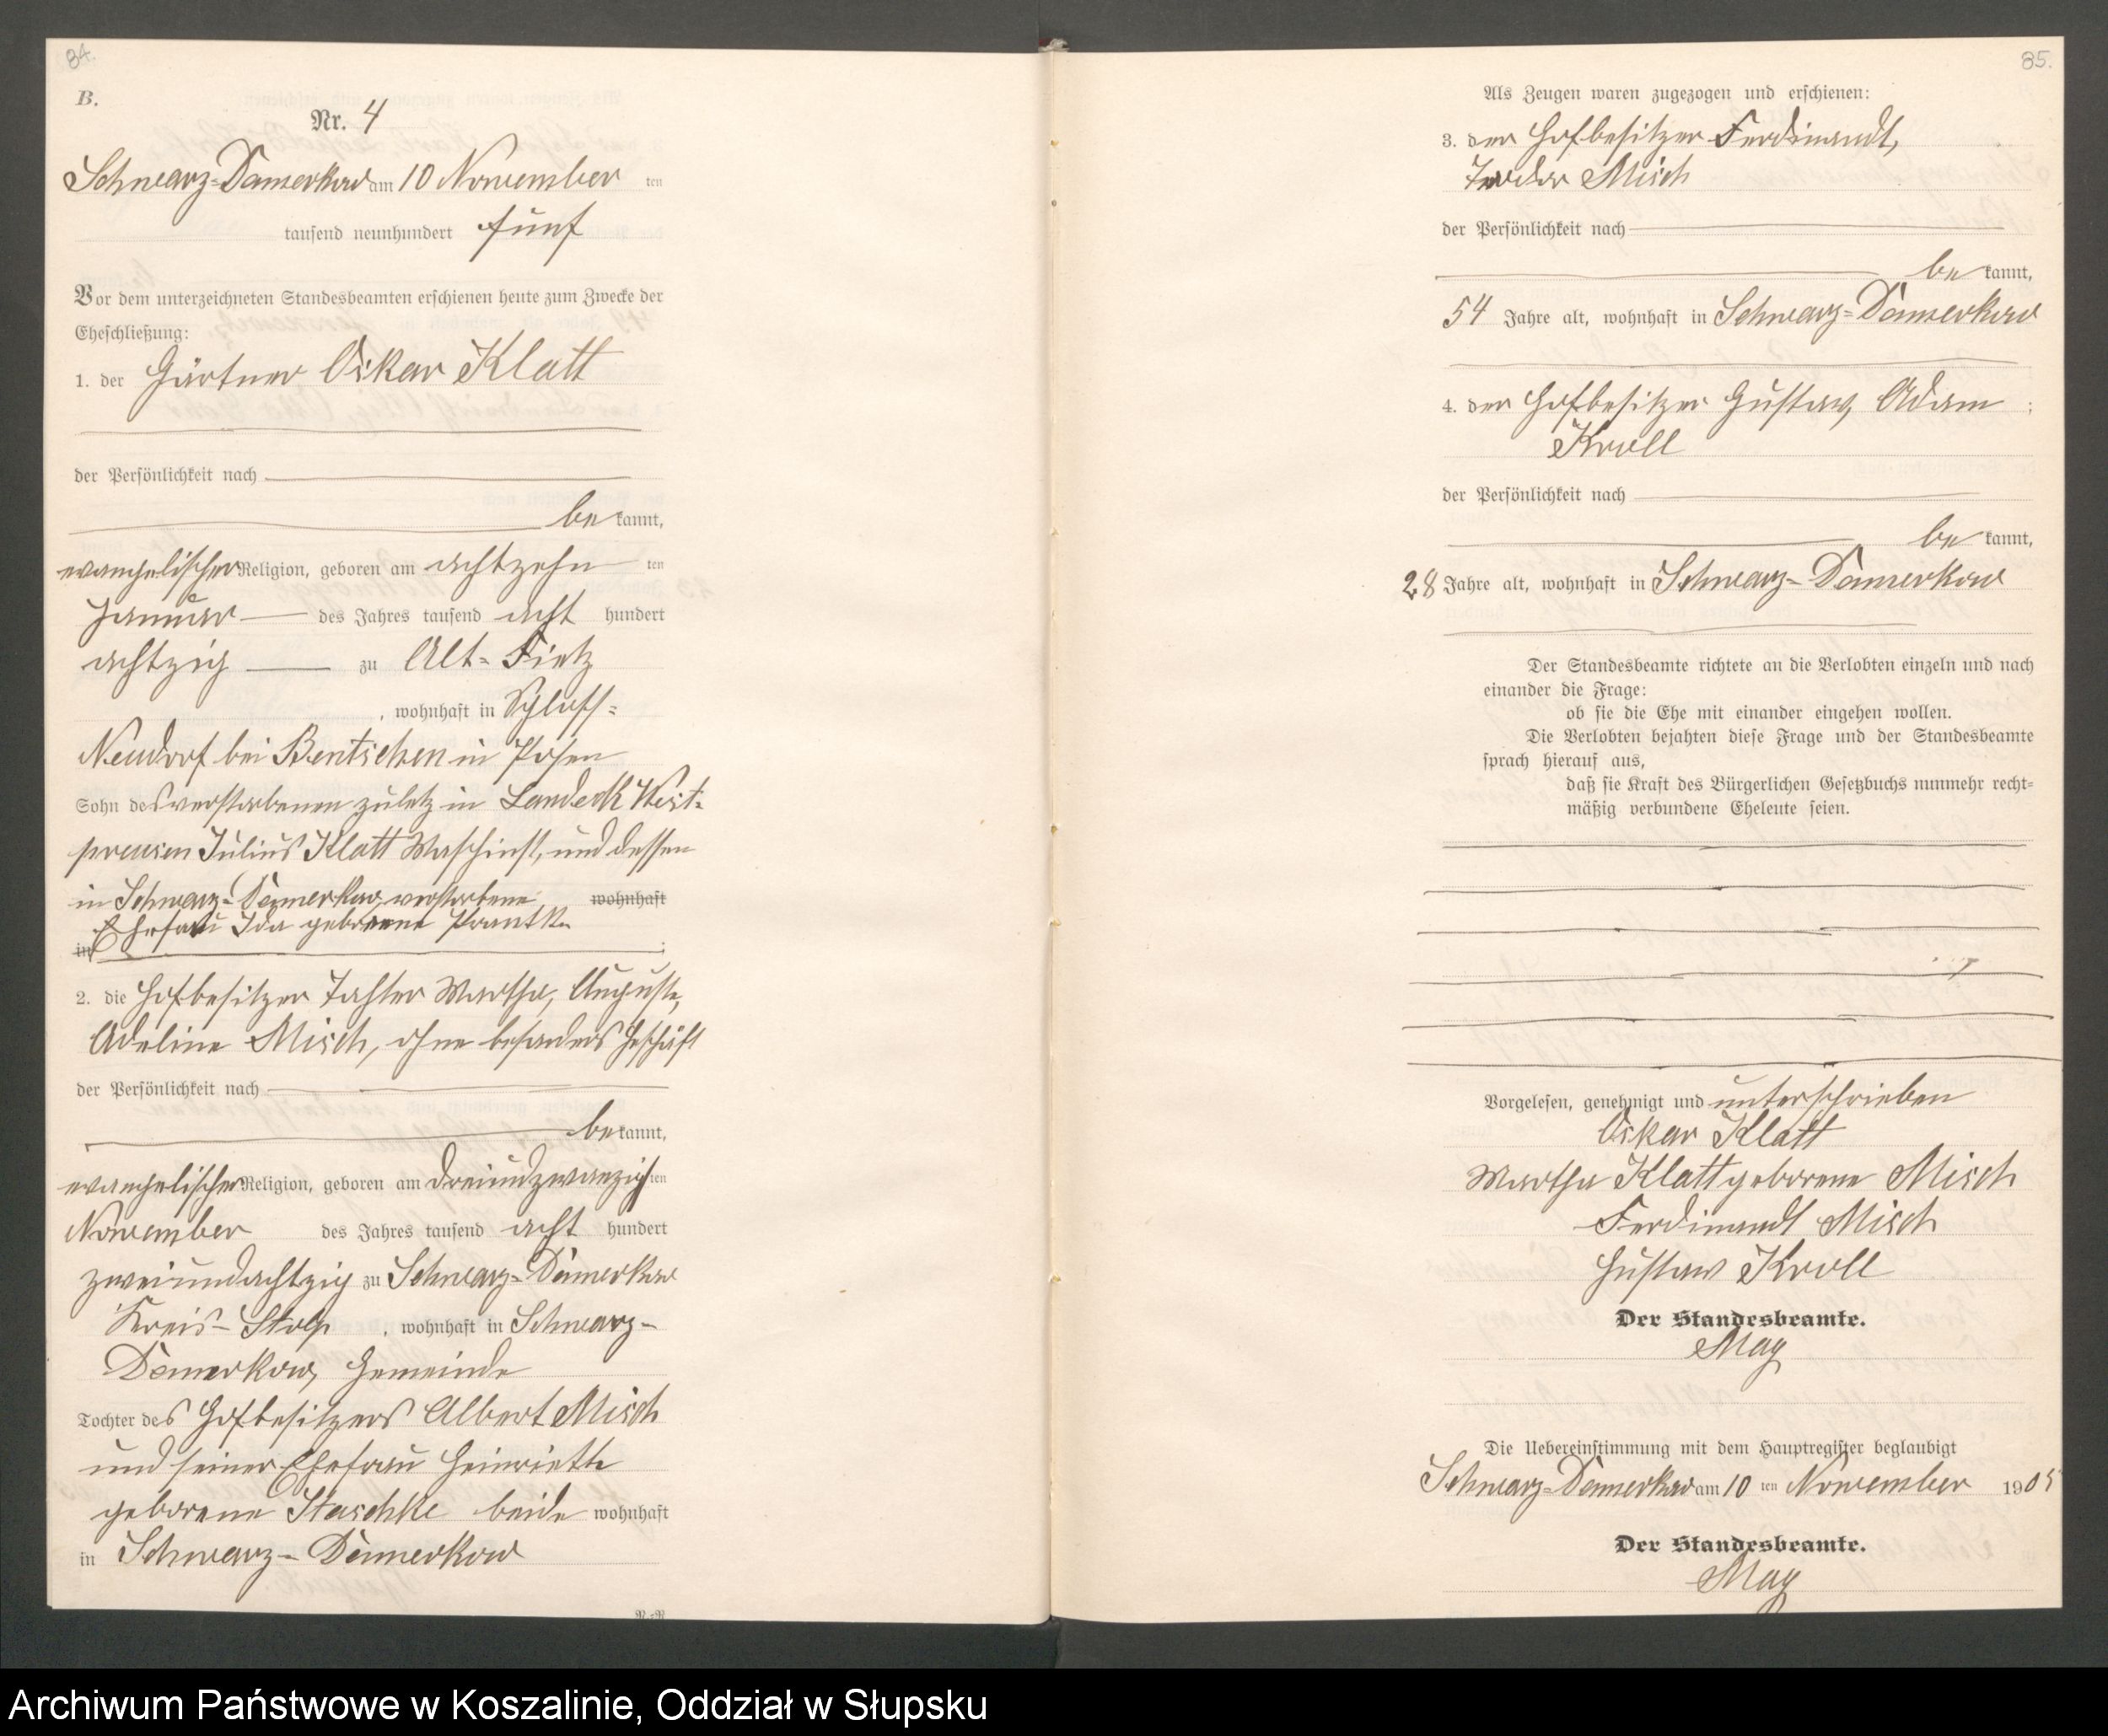 84.
B.
Nr. 4
Schwarz-Damerkow am 10 November ten
tausend neunhundert fünf
Vor dem unterzeichneten Standesbeamten erschienen heute zum Zwecke der
Eheschließung:
1. der Gärtner Oskar Klatt
der Persönlichkeit nach
be kannt,
evangelischer Religion, geboren am achtzehn ten
Januar des Jahres tausend acht hundert
achtzig zu Alt-Fietz
, wohnhaft in Schloss-
Neudorf bei Bentschen in Posen
Sohn des verstorbenen zuletz in Landeck West-
preusen Julius Klatt Maschinst, und dessen
in Schwarz-Damerkow verstorbene wohnhaft
in Ehefrau Ida geborene Prantk
;
2. die Hofbesitzer Tahter Martha, Auguste,
Adeline Misch, ohne besonders Geschäft
der Persönlichkeit nach
be kannt,
evangelischer Religion, geboren am dreiundzwanzigsten
November des Jahres tausend acht hundert
zweiundachtzig zu Schwarz-Damerkow
Kreis-Stolp , wohnhaft in Schwarz-
Damerkow, Gemeinde
Tochter des Hofbesitzers Albert Misch
und seiner Ehefrau Heinriette
geborene Staschke beide wohnhaft
in Schwarz-Damerkow
85.
Als Zeugen waren zugezogen und erschienen:
3. der Hofbesitzer Ferdinandt,
Misch
der Persönlichkeit nach
be kannt,
54 Jahre alt, wohnhaft in Schwarz-Damerkow
4. der Hofbesitzer Gustav, Adam ;
Kroll
der Persönlichkeit nach
be kannt,
28 Jahre alt, wohnhaft in Schwarz-Damerkow
Der Standesbeamte richtete an die Verlobten einzeln und nach
einander die Frage:
ob sie die Ehe mit einander eingehen wollen.
Die Verlobten bejahten diese Frage und der Standesbeamte
sprach hierauf aus,
daß sie Kraft des Bürgerlichen Gesetzbuchs nunmehr recht-
mäßig verbundene Eheleute seien.
Vorgelesen, genehmigt und unterschrieben
Oskar Klatt
Martha Klatt geborene Misch
Ferdinandt Misch
Gustav Kroll
Der Standesbeamte.
May
Die Uebereinstimmung mit dem Hauptregister beglaubigt
Schwarz-Damerkow am 10 ten November 1905
Der Standesbeamte.
May
Archiwum Państwowe w Koszalinie, Oddział w Słupsku